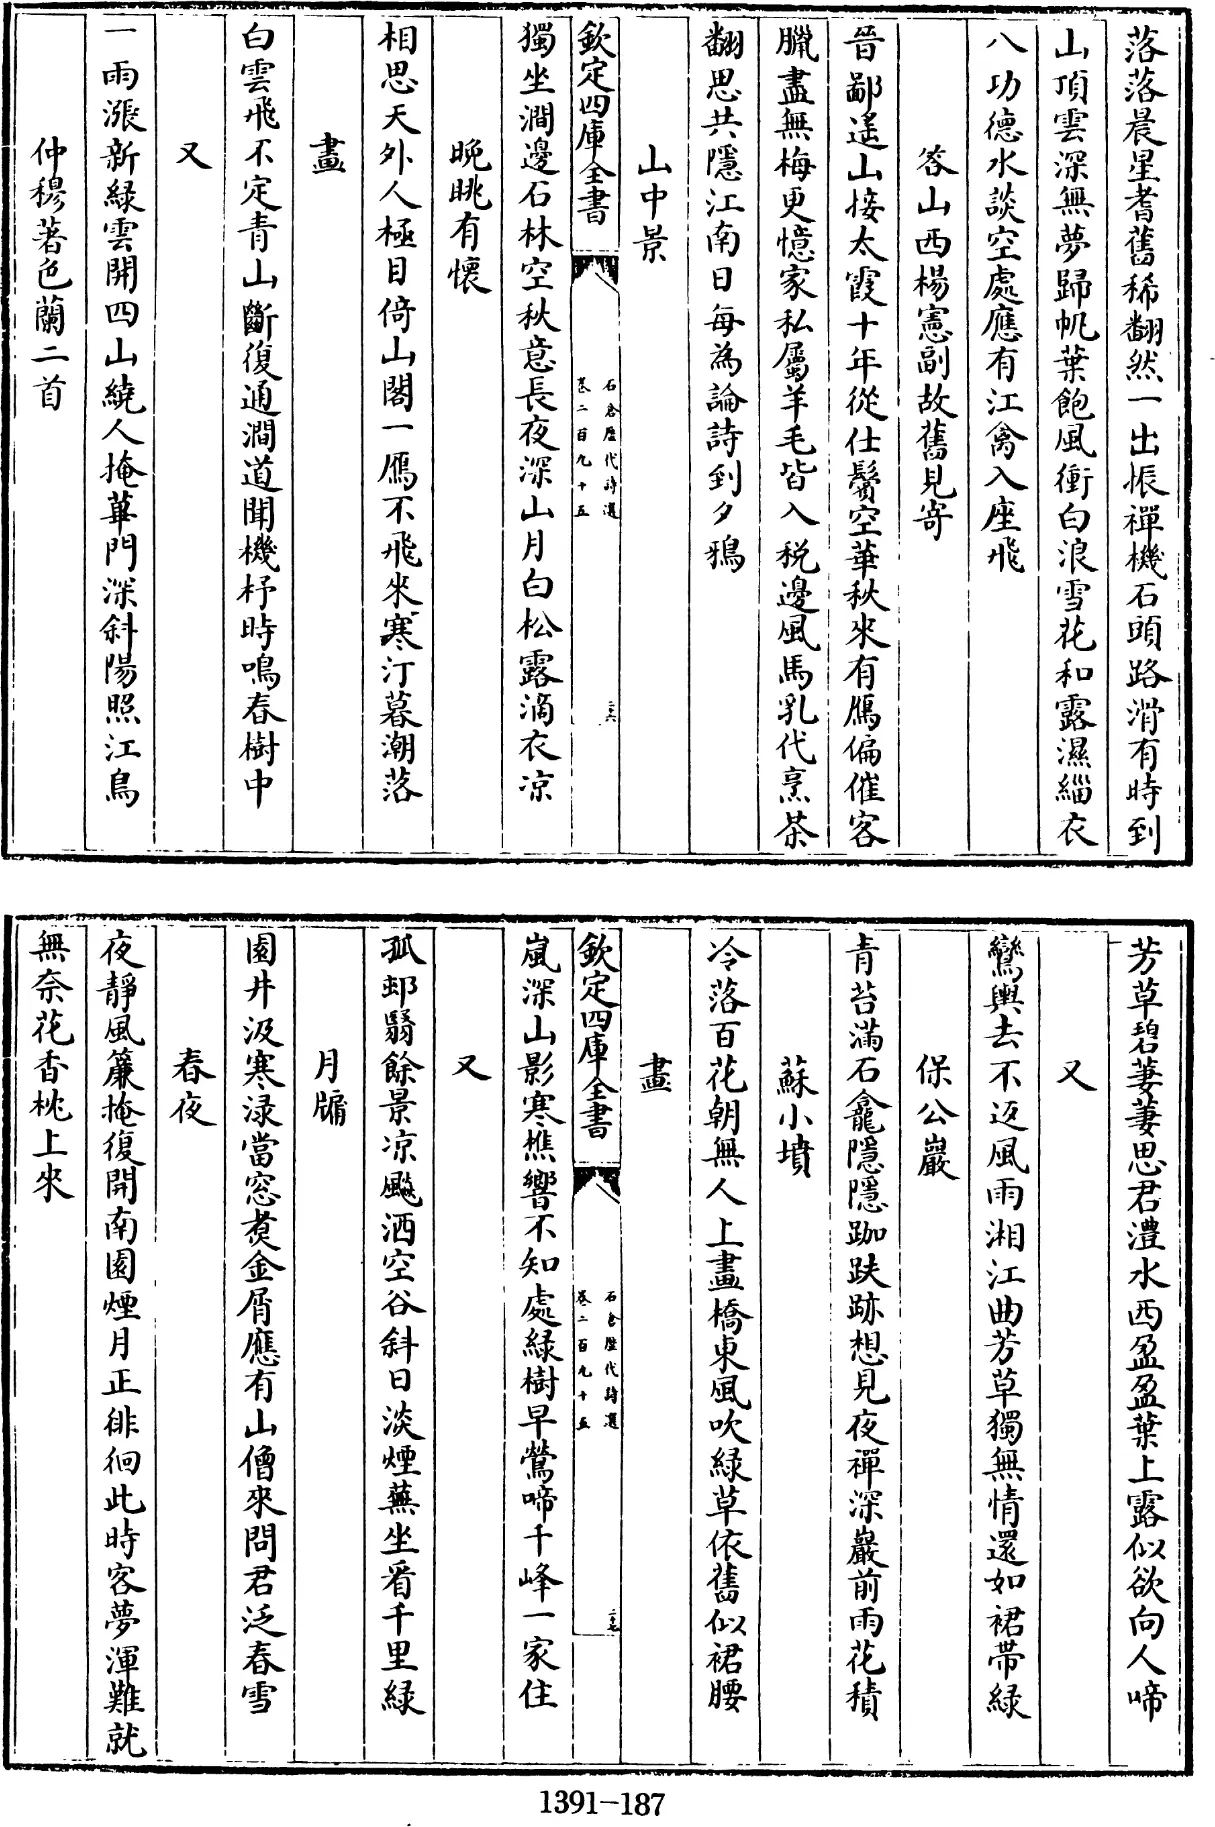 落落晨星耆舊稀翻然一出振禪機石頭路滑有時到
山頂雲深無夢歸帆葉飽風衝白浪雪花和露濕緇衣
八功德水談空處應有江禽入座飛
答山西楊憲副故舊見寄
晉鄙遙山接太霞十年從仕鬢空華秋來有鴈偏催客
臘盡無梅更憶家私屬羊毛皆入稅邊風馬乳代烹茶
翻思共隱江南日每為論詩到夕鴉
山中景
欽定四庫全書
石倉歷代詩選
卷二百九十五
二六
獨坐澗邊石林空秋意長夜深山月白松露滴衣凉
晚眺有懷
相思天外人極目倚山閣一鴈不飛來寒汀暮潮落
畫
白雲飛不定青山斷復通澗道聞機杼時鳴春樹中
又
一雨漲新緑雲開四山繞人掩蓽門深斜陽照江鳥
仲穆著色蘭二首
芳草碧萋萋思君澧水西盈盈葉上露似欲向人啼
又
鸞輿去不返風雨湘江曲芳草獨無情還如裙帶緑
保公巖
青苔滿石龕隱隱跏趺跡想見夜禪深巖前雨花積
蘇小墳
冷落百花朝無人上畫橋東風吹緑草依舊似裙腰
畫
欽定四庫全書
石倉歷代詩選
卷二百九十五
二七
嵐深山影寒樵響不知處緑樹早鶯啼千峰一家住
又
孤邨翳餘景凉飈洒空谷斜日淡煙蕪坐看千里緑
月牖
園井汲寒渌當窓煑金屑應有山僧來問君泛春雪
春夜
夜靜風簾掩復開南園煙月正徘徊此時客夢渾難就
無奈花香枕上來
1391-187